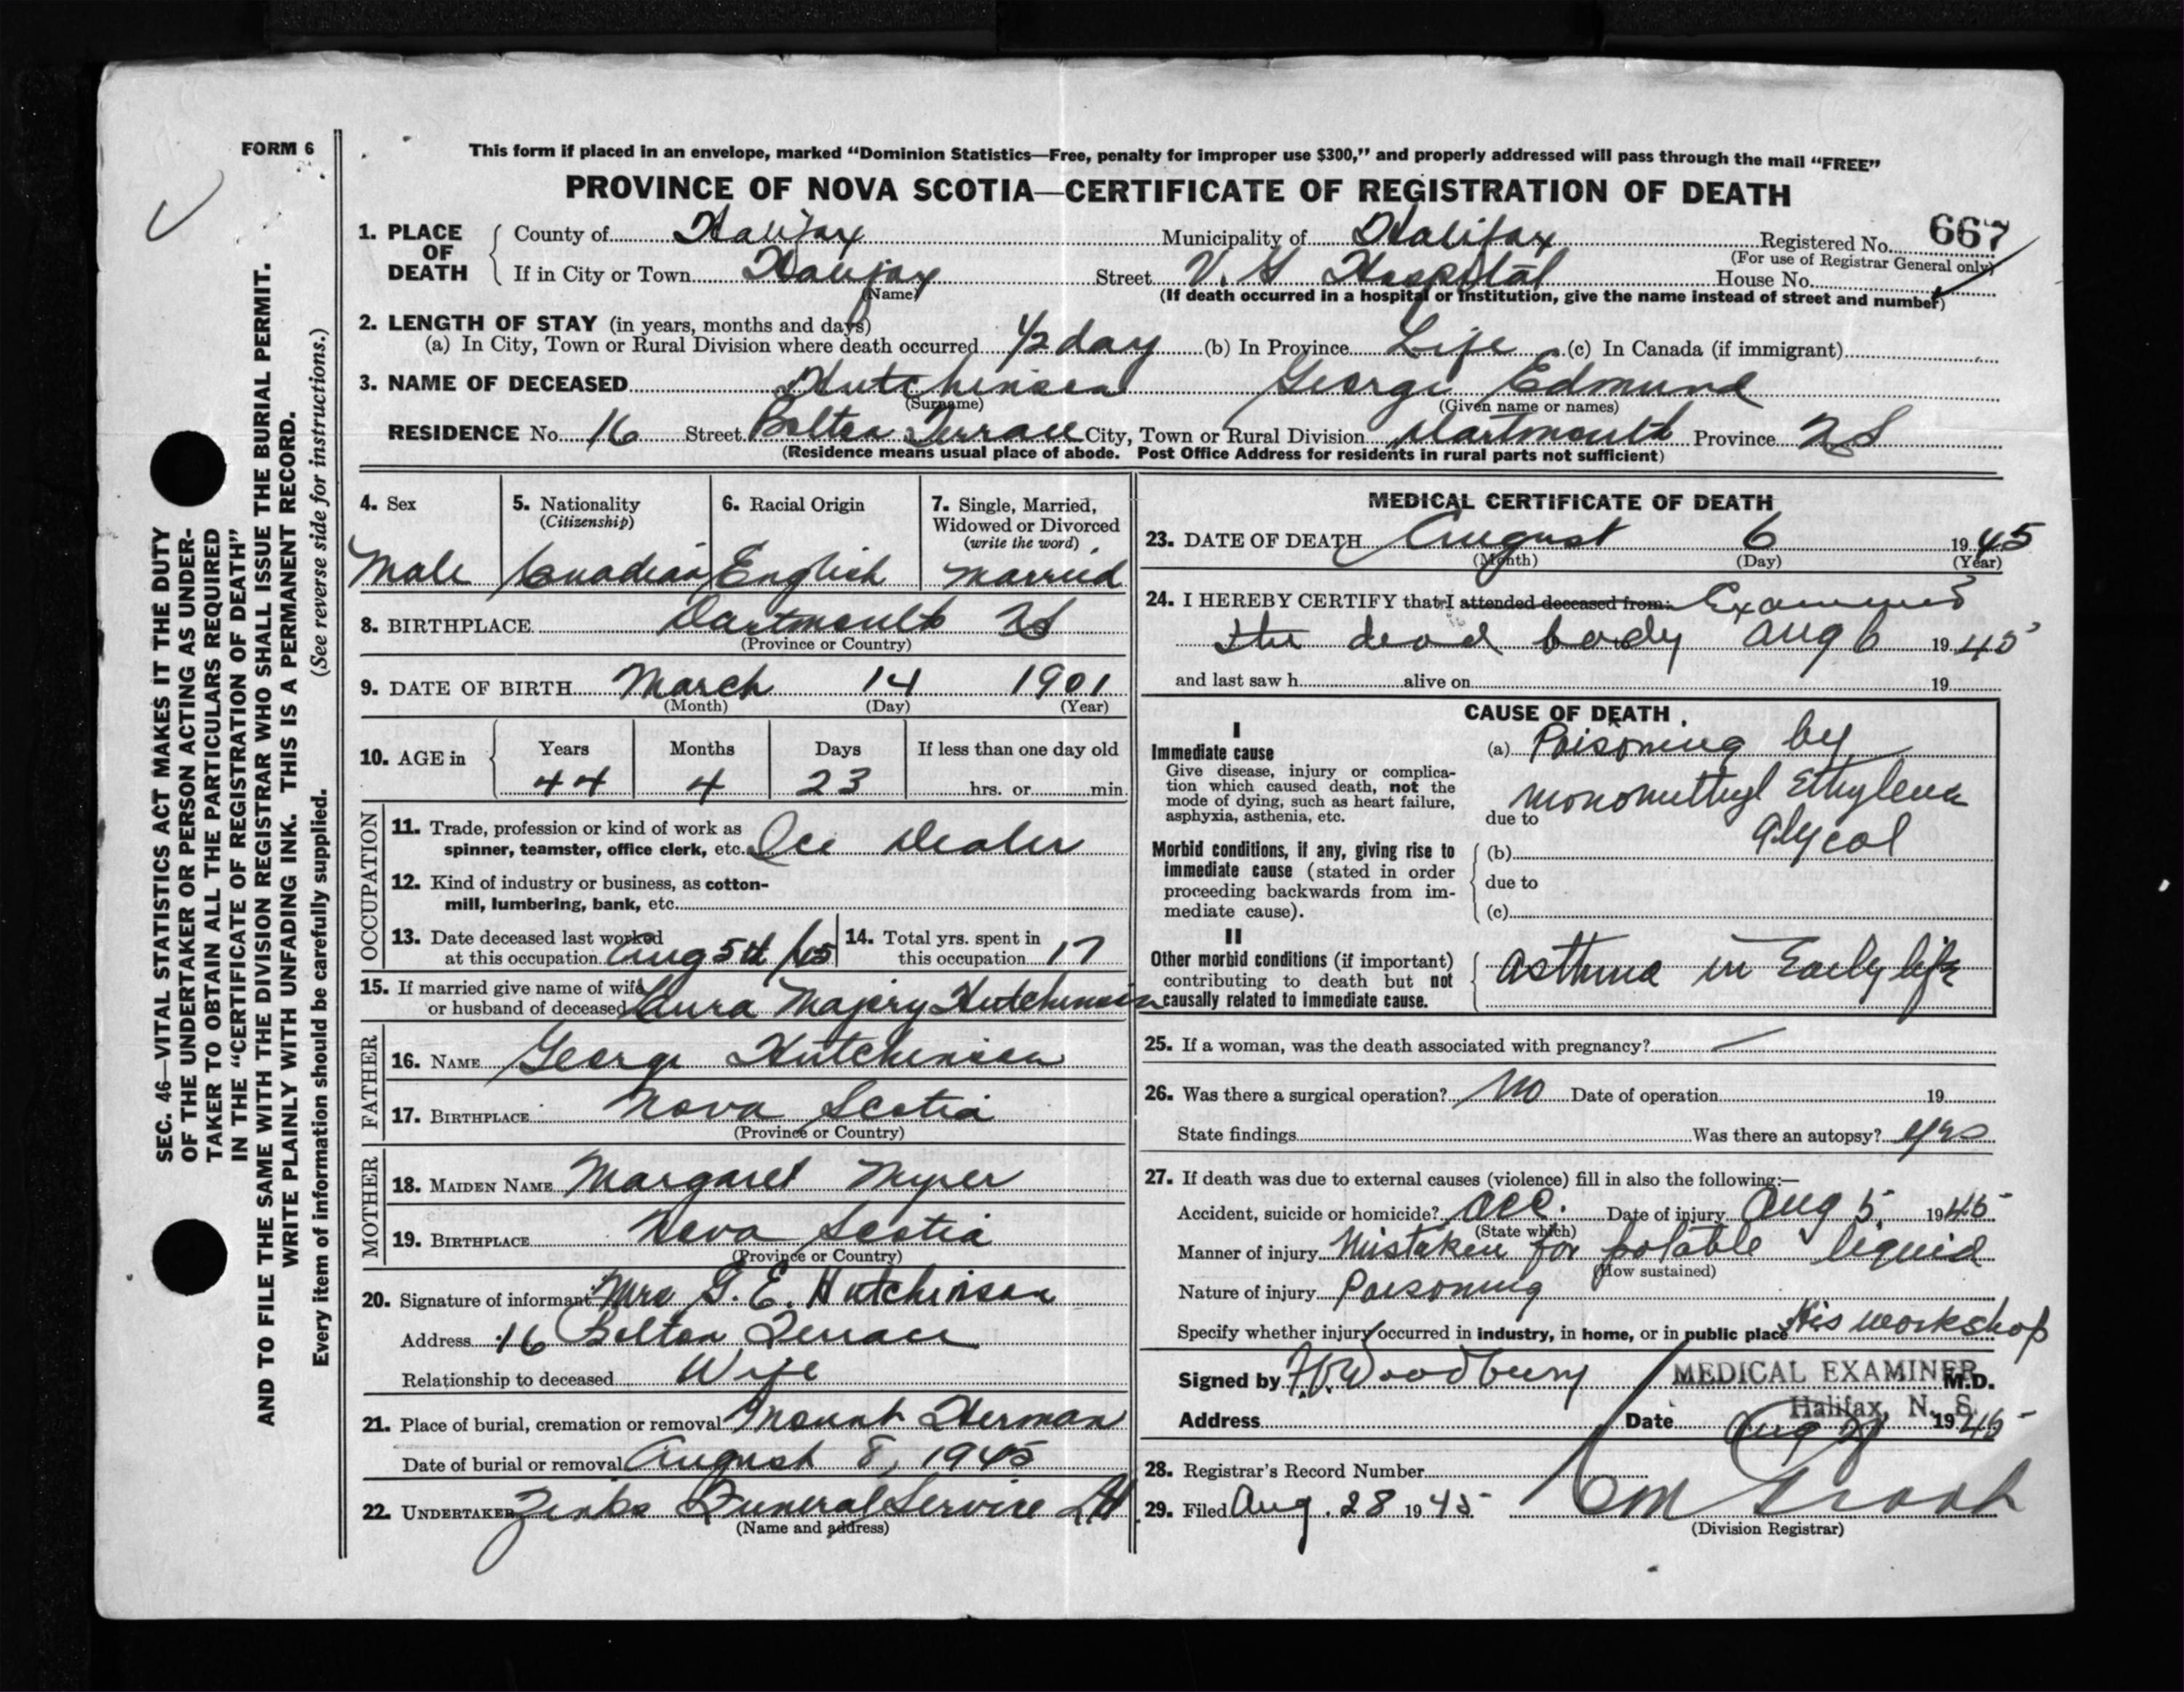 FORM 6
This form if placed in an envelope, marked “Dominion Statistics—Free, penalty for improper use $300,” and properly addressed will pass through the mail “FREE”
PROVINCE OF NOVA SCOTIA—CERTIFICATE OF REGISTRATION OF DEATH
1. PLACE OF DEATH
County of Halifax Municipality of Halifax Registered No. 667
(For use of Registrar General only)
If in City or Town Halifax Street V. G Hospital House No.
(Name) (If death occurred in a hospital or institution, give the name instead of street and number)
2. LENGTH OF STAY (in years, months and days)
(a) In City, Town or Rural Division where death occurred 1/2 day (b) In Province Life (c) In Canada (if immigrant)
3. NAME OF DECEASED Hutchinson George Edmund
(Surname) (Given name or names)
RESIDENCE No. 16 Street Bolton Terrace City, Town or Rural Division Dartmouth Province NS
(Residence means usual place of abode. Post Office Address for residents in rural parts not sufficient)
4. Sex
Male
5. Nationality
(Citizenship)
Canadian
6. Racial Origin
English
7. Single, Married,
Widowed or Divorced
(write the word)
Married
8. BIRTHPLACE Dartmouth NS
(Province or Country)
9. DATE OF BIRTH March 14 1901
(Month) (Day) (Year)
10. AGE in Years Months Days If less than one day old
44 4 23 hrs. or min.
OCCUPATION
11. Trade, profession or kind of work as
spinner, teamster, office clerk, etc. Ice Dealer
12. Kind of industry or business, as cotton-
mill, lumbering, bank, etc.
13. Date deceased last worked
at this occupation Aug 5th /45
14. Total yrs. spent in
this occupation 17
15. If married give name of wife
or husband of deceased Laura Majory Hutchinson
FATHER
16. NAME George Hutchinson
17. BIRTHPLACE Nova Scotia
(Province or Country)
MOTHER
18. MAIDEN NAME Margaret
19. BIRTHPLACE Nova Scotia
(Province or Country)
20. Signature of informant Mrs G. E. Hutchinson
Address 16 Bolton Terrace
Relationship to deceased Wife
21. Place of burial, cremation or removal Mount Herman
Date of burial or removal August 8, 1945
22. UNDERTAKER Zinks Funeral Service Ltd
(Name and address)
MEDICAL CERTIFICATE OF DEATH
23. DATE OF DEATH August 6 1945
(Month) (Day) (Year)
24. I HEREBY CERTIFY that I attended deceased from: Examined
the dead body Aug 6 1945
and last saw h alive on 19
CAUSE OF DEATH
I
Immediate cause
Give disease, injury or complica-
tion which caused death, not the
mode of dying, such as heart failure,
asphyxia, asthenia, etc.
(a) Poisoning by
monomethyl Ethylene
due to
Glycol
Morbid conditions, if any, giving rise to
immediate cause (stated in order
proceeding backwards from im-
mediate cause).
(b)
due to
(c)
II
Other morbid conditions (if important)
contributing to death but not
causally related to immediate cause.
Asthma in Early life
25. If a woman, was the death associated with pregnancy? —
26. Was there a surgical operation? No Date of operation 19
State findings Was there an autopsy? yes
27. If death was due to external causes (violence) fill in also the following:—
Accident, suicide or homicide? acc. Date of injury Aug 5 1945
(State which)
Manner of injury Mistaken for potable liquid
(How sustained)
Nature of injury Poisoning
Specify whether injury occurred in industry, in home, or in public place His workshop
Signed by Woodbury MEDICAL EXAMINER M.D.
Halifax, N. S.
Address Date Aug 1945
28. Registrar's Record Number
29. Filed Aug. 28 1945
(Division Registrar)
SEC. 46—VITAL STATISTICS ACT MAKES IT THE DUTY
OF THE UNDERTAKER OR PERSON ACTING AS UNDER-
TAKER TO OBTAIN ALL THE PARTICULARS REQUIRED
IN THE “CERTIFICATE OF REGISTRATION OF DEATH”
AND TO FILE THE SAME WITH THE DIVISION REGISTRAR WHO SHALL ISSUE THE BURIAL PERMIT.
WRITE PLAINLY WITH UNFADING INK. THIS IS A PERMANENT RECORD.
Every item of information should be carefully supplied. (See reverse side for instructions.)